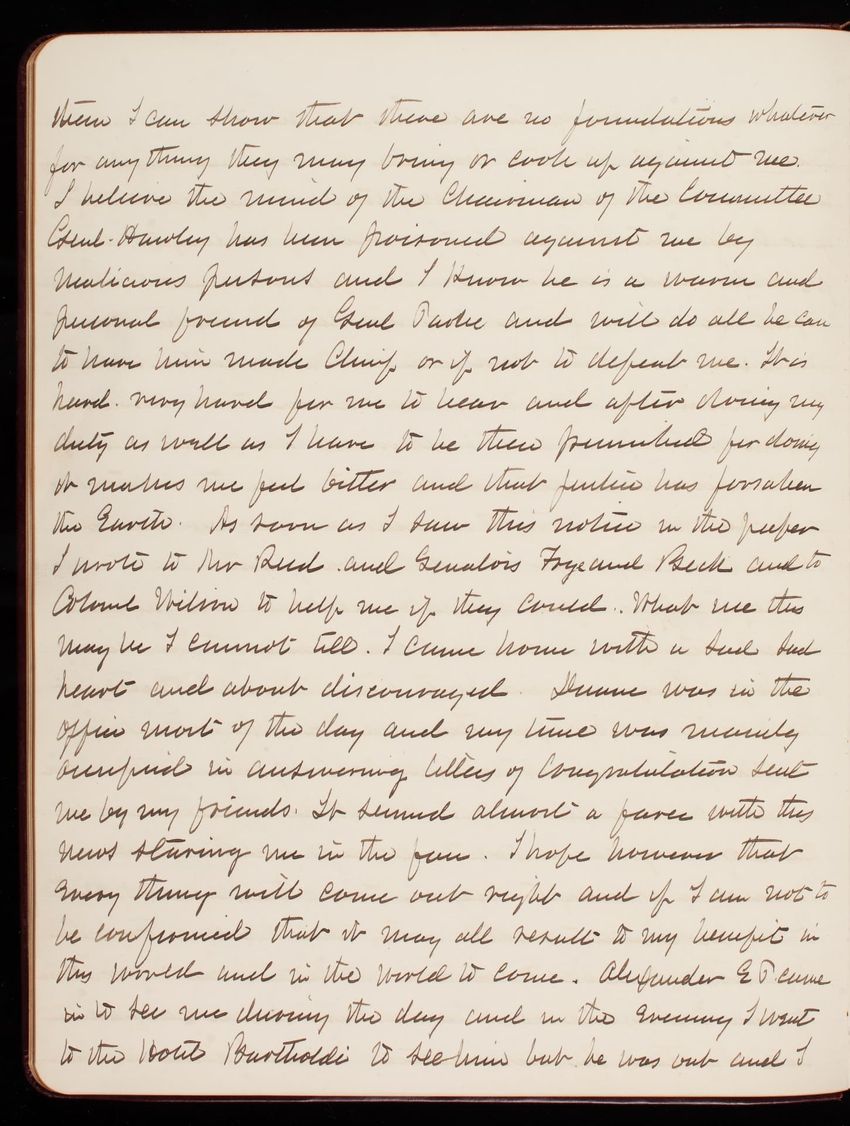 them I can show that there are no foundations whatever
for any thing they may bring or cook up against me.
I believe the mind of the Chairman of the Committee
Genl. Hawley has been poisoned against me by
malicious persons and I know he is a warm and
personal friend of Genl Parke and will do all he can
to have him made Chief or if not to defeat me. It is
hard. very hard for me to bear and after doing my
duty as well as I have to be then punished for doing
it makes me feel bitter and that justice has forsaken
the Earth. As soon as I saw this notice in the paper
I wrote to Mr Reed. and Senators Frye and Beck and to
Colonel Wilson to help me if they could. What use this
may be I cannot tell. I came home with a sad sad
heart and about discouraged. Duane was in the
office most of the day and my time was mainly
occupied in answering letters of Congratulation sent
me by my friends. It seemed almost a farce with this
news staring me in the face. I hope however that
every thing will come out right and if I am not to
be confirmed that it may all result to my benefit in
this world and in the world to come. Alexander E P came
in to see me during the day and in the evening I went
to the Hotel Bartholdi to see him but he was out and I